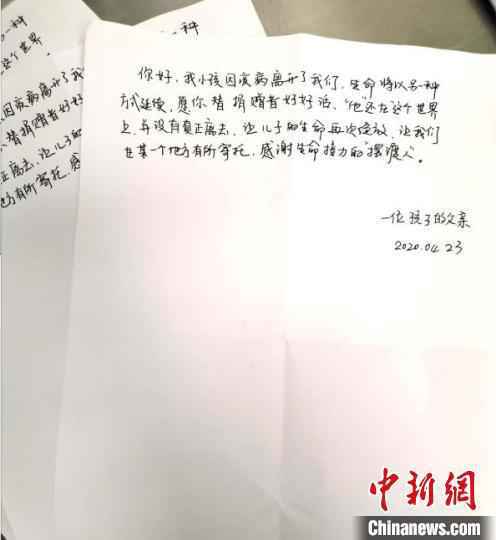 一种
一种
这个世界
因疾病离开了我
替捐赠者好好
正离去,让儿子的
地方有所寄托,感
你好,我小孩因疾病离开了我们,生命将以另一种
方式延续,愿你替捐赠者好好活,"他还在这个世界
上,并没有真正离去,让儿子的生命再次绽放,让我们
在某一个地方有所寄托,感谢生命接力的"摆渡人"。
一位孩子的父亲
2020.04.23
中新网
Chinanews.com